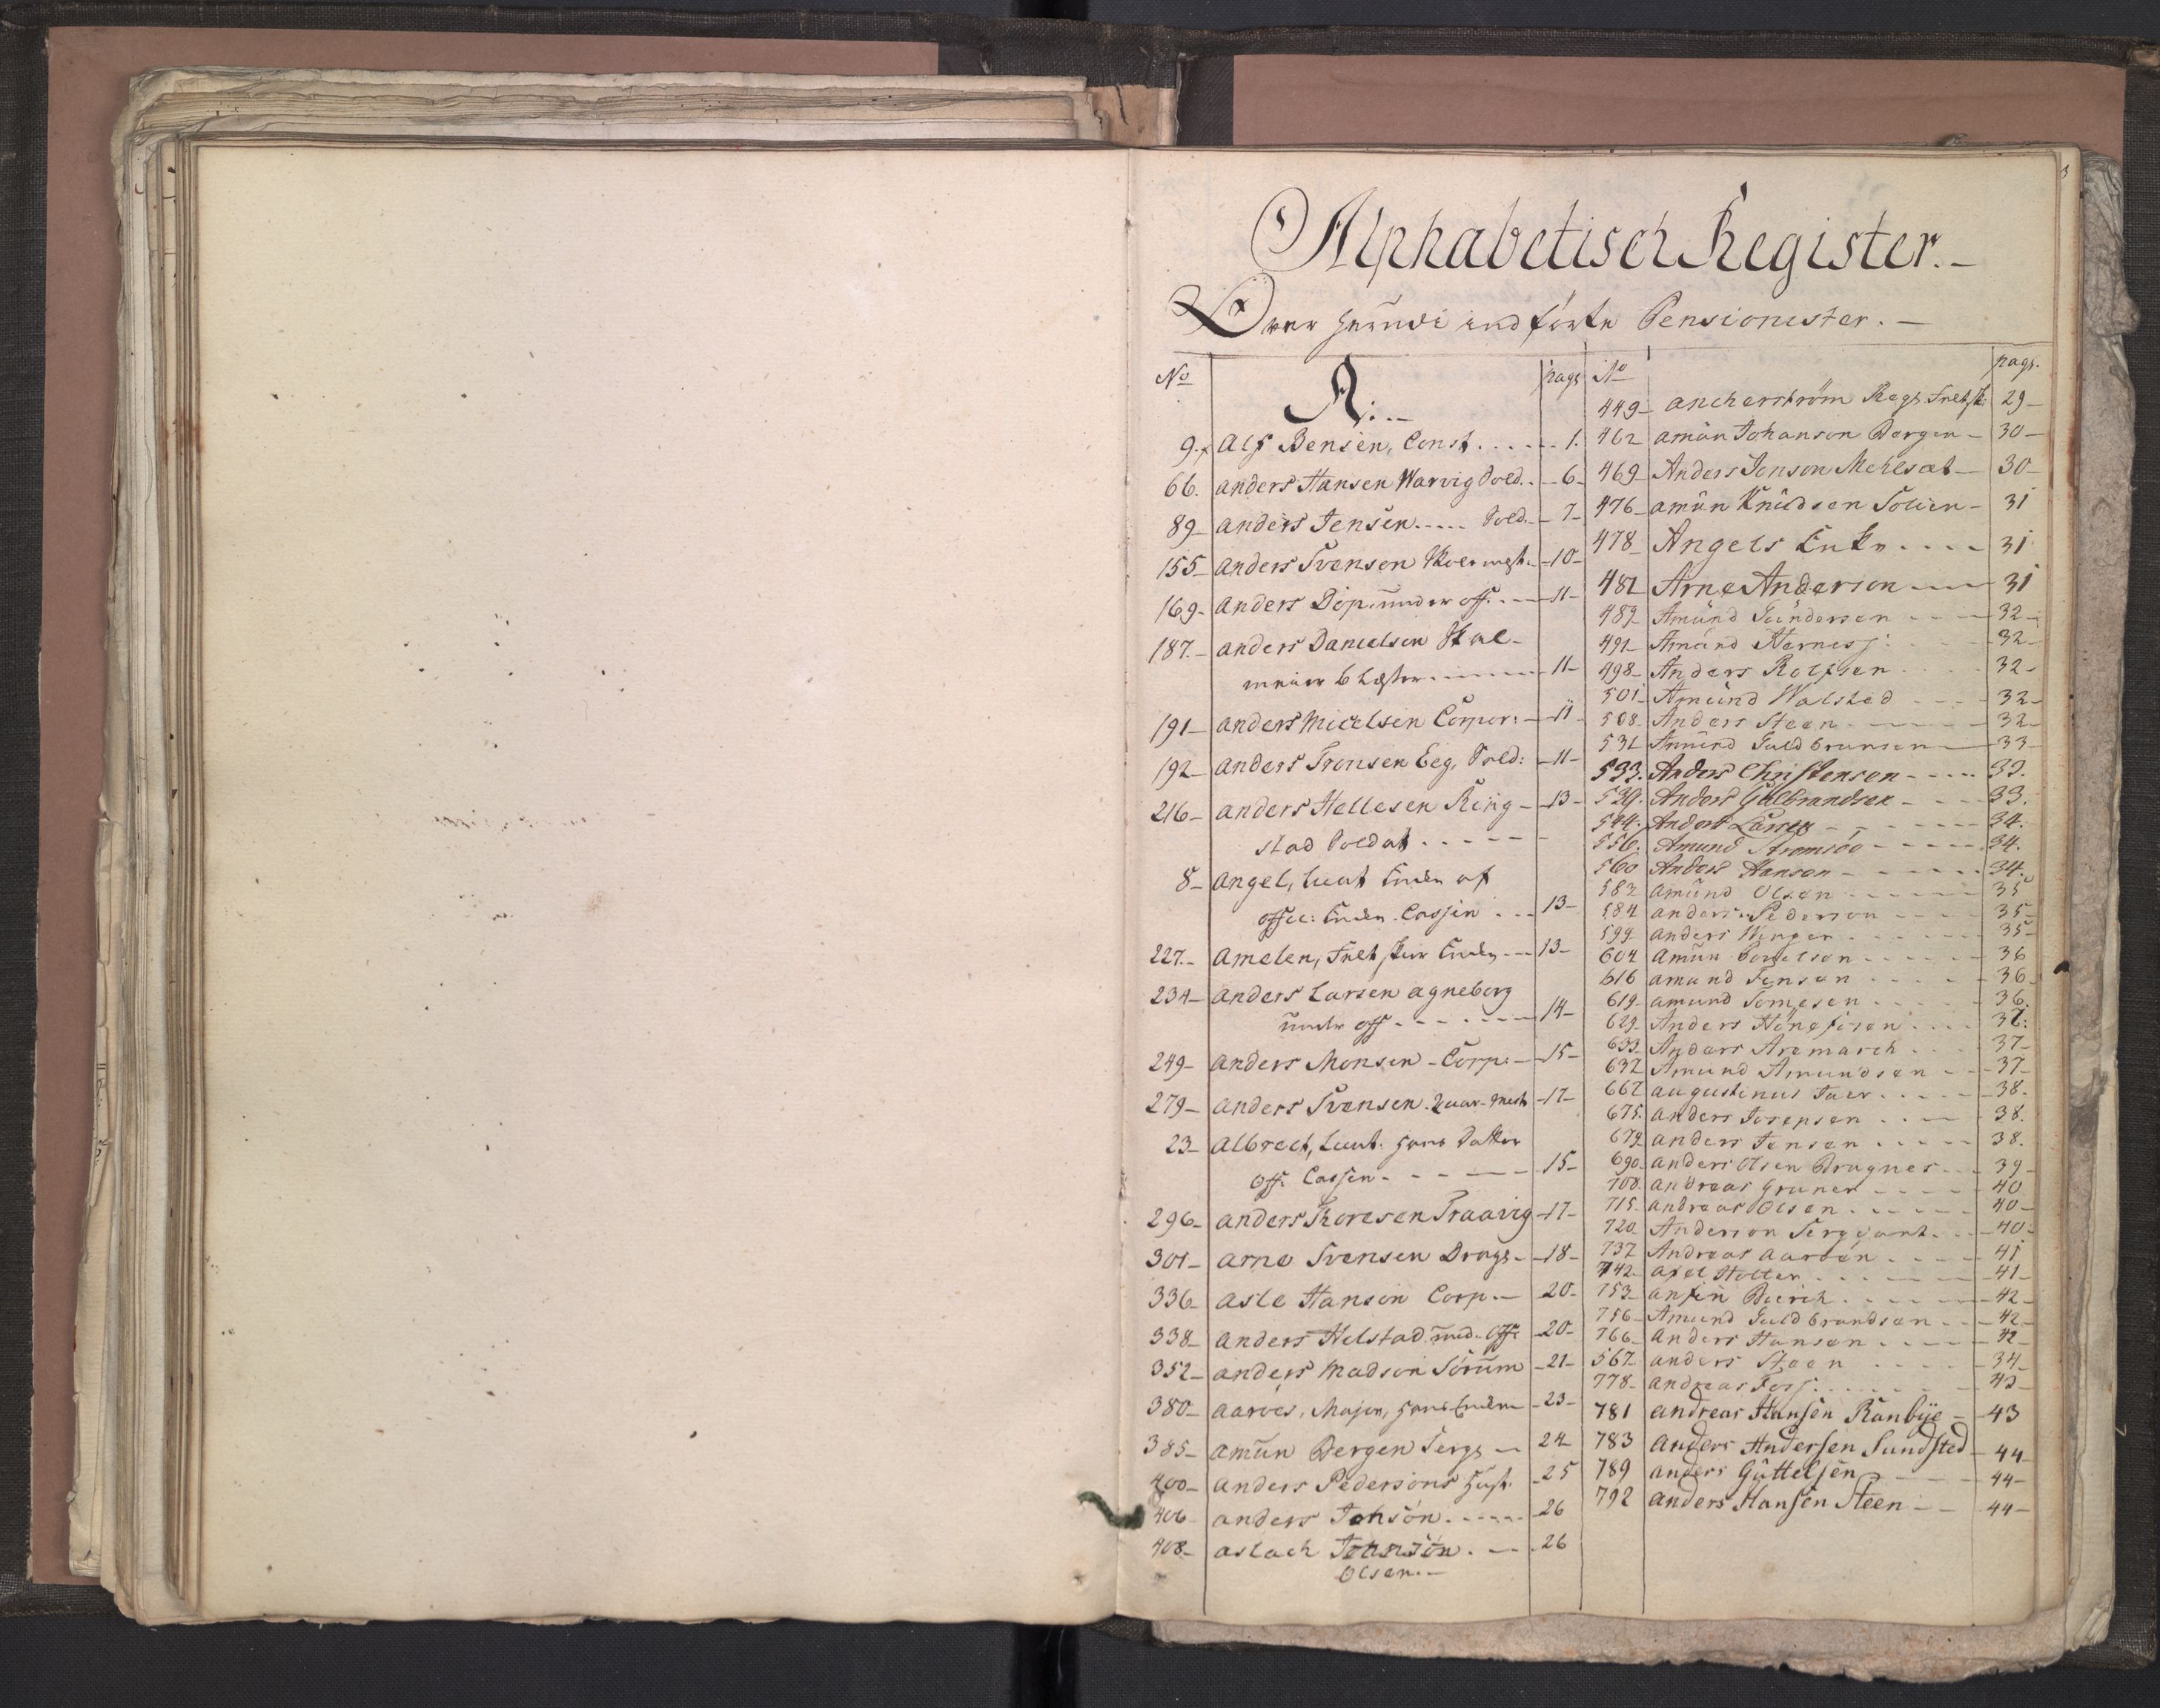 Alphabetisch Register.
Over herudi indførte Pensionister.
No A: pag:
9. Alf Bensen, Const. 1.
66. anders Hansen Warvig Sold. 6
89 anders Jensen Sold. 7
155 anders Svensen 10
169 anders Dop. under off. 11
187. anders Danielsen
11
191 anders Micelsen Corpor: 11
192 anders Tronsen Eeg, Sold: 11
216 anders Hellesen Ring- 13
stad Soldat
8 Angel, Lieut Encke af
offic: Encke Cassen 13
227. Amelen, Encke 13
234 anders Larsen agneberg
under off 14
249 anders Monsen Corp: 15
279 anders Svensen. 17
23 Albrect, Lieut. hans Datter
off: Cassen 15
296 anders Thoresen Traavig 17
301 arne Svensen Drag: 18
336 asle Hansen Corp. 20
338 anders Helstad und. off: 20
352 anders Madson Sörum 21
380 Aaroes, Major, hans Encke 23
385 amun Bergen Serg: 24
400 anders Pedersons hust. 25
406 anders Johsön 26
408 aslach 26
Olsen.
No pag:
449 ancherström Reg: 29
462 amun Johanson Bergen 30
469 Anders Jonson Mehlsæt 30
476 amun Knudsen Solien 31
478 Angels Enke 31
481 Arne Anderson 31
489 Amund Gundersen 32
491 Amund Herness: 32
498 Anders Rolfsen 32
501 Amund Walsted 32
508 Anders Steen 32
531 Amund Guldbransen 33
533. Anders Christensen 33.
539. Anders Gulbrandsen 33.
544. Anders Larsen 34.
556. Amund Stromsöe 34.
560 Anders Hansen 34.
582 amund Olsen 35
584 anders Pederson 35
599 anders Winger 35
604 amun 36
616 amund Jensen 36
619 amund 36.
629 Anders
633 Anders Aremarch 37
637 Amund Amundsen 37
667 augustinus Faer 38.
675. anders Jorensen 38.
679 anders Jensen 38.
690 anders Olsen Dragnes 39
708. andreas Gruner 40
715 andreas Olsen 40
720 Anderson Sergeant 40
737 Andreas Aarben 41
742 axel Holter 41
753 anfin 42
756 Amund Guldbrandsen 42
766 anders Hansen 42
567 anders Steen 34
778 andreas Foss: 43
781 andreas Hansen Ranbye 43
783 anders Andersen Sundsted 44
789 anders Guttelsen 44
792 anders Hansen Steen 44